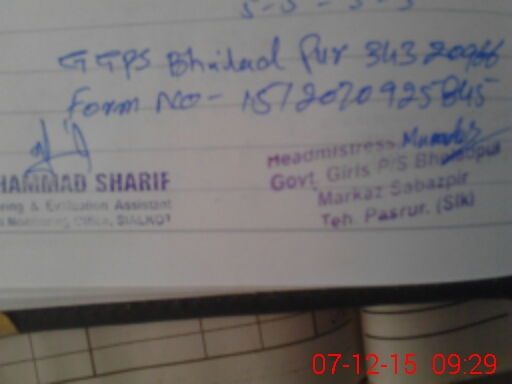 5-5-5-5
GGPS Bhilad Pur 34320966
Form NO- 15/2070925845
HAMMAD SHARIF
ring & Evaluation Assistant
Monitoring Office, SIALKOT
Headmistress
Govt. Girls P/S
Markaz Sabazpir
Teh. Pasrur. (Slk)
07-12-15 09:29